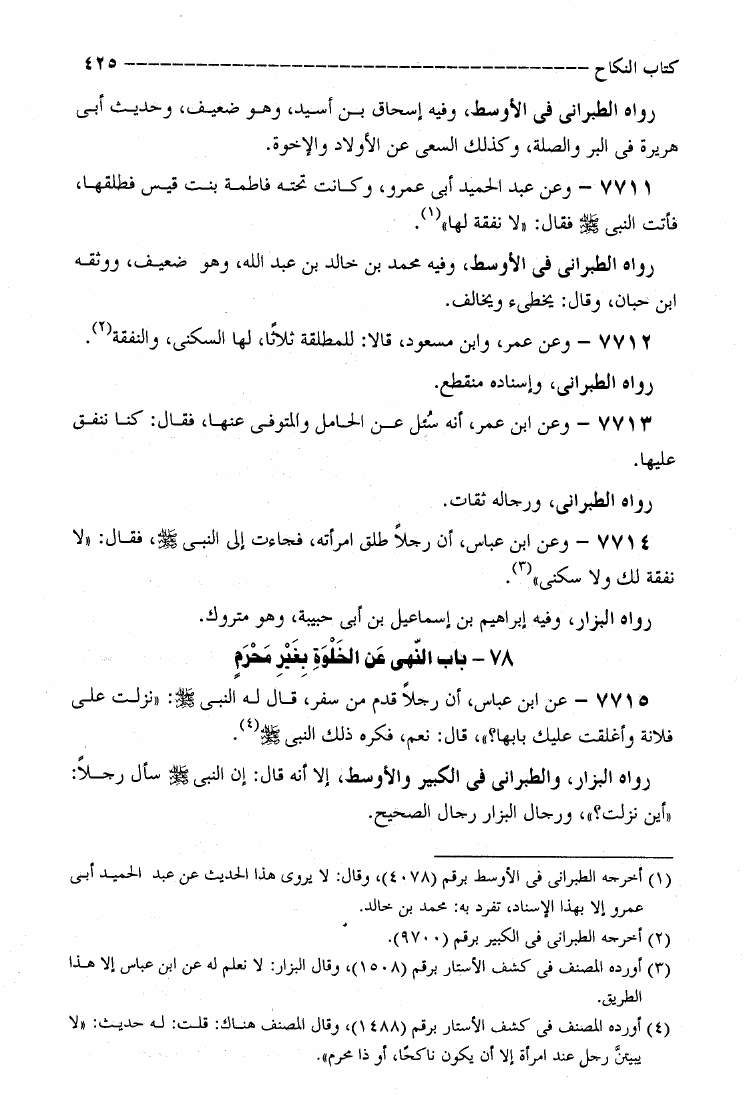 كتاب النكاح ------------------------------------------ ٤٢٥
رواه الطبرانى فى الأوسط، وفيه إسحاق بـن أسـيد، وهـو ضعيـف، وحديـث أبـى
هريرة فى البر والصلة، وكذلك السعى عن الأولاد والإخوة.
٧٧١١ – وعن عبد الحميد أبى عمرو، وكـانت تحتـه فاطمـة بنـت قيـس فطلقهـا،
فأتت النبى ﷺ فقال: «لا نفقة لها»(١).
رواه الطبرانى فى الأوسط، وفيه محمد بن خالد بن عبد الله، وهو ضعيـف، ووثقـه
ابن حبان، وقال: يخطىء ويخالف.
٧٧١٢ – وعن عمر، وابن مسعود، قالا: للمطلقة ثلاثًا، لها السكنى، والنفقة(٢).
رواه الطبرانى، وإسناده منقطع.
٧٧١٣ – وعن ابن عمر، أنه سُئل عـن الحـامل والمتوفـى عنهـا، فقـال: كنـا ننفـق
عليها.
رواه الطبرانى، ورجاله ثقات.
٧٧١٤ – وعن ابن عباس، أن رجلاً طلق امرأته، فجاءت إلى النبـى ﷺ، فقـال: «لا
نفقة لك ولا سكنى»(٣).
رواه البزار، وفيه إبراهيم بن إسماعيل بن أبى حبيبة، وهو متروك.
٧٨ – باب النَّهى عَن الخَلْوَةِ بِغَيْرِ مَحْرَمٍ
٧٧١٥ – عن ابن عباس، أن رجلاً قدم من سفر، قـال لـه النبـى ﷺ: «نزلـت علـى
فلانة وأغلقت عليك بابها؟»، قال: نعم، فكره ذلك النبى ﷺ(٤).
رواه البزار، والطبرانى فى الكبير والأوسط، إلا أنه قال: إن النبى ﷺ سأل رجـلاً:
«أين نزلت؟»، ورجال البزار رجال الصحيح.
(١) أخرجه الطبرانى فى الأوسط برقم (٤٠٧٨)، وقال: لا يروى هذا الحديث عن عبد الحميـد أبـى
عمرو إلا بهذا الإسناد، تفرد به: محمد بن خالد.
(٢) أخرجه الطبرانى فى الكبير برقم (٩٧٠٠).
(٣) أورده المصنف فى كشف الأستار برقم (١٥٠٨)، وقال البزار: لا نعلم له عن ابن عباس إلا هـذا
الطريق.
(٤) أورده المصنف فى كشف الأستار برقم (١٤٨٨)، وقال المصنف هنـاك: قلـت: لـه حديـث: «لا
يبيتنَّ رجل عند امرأة إلا أن يكون ناكحًا، أو ذا محرم».